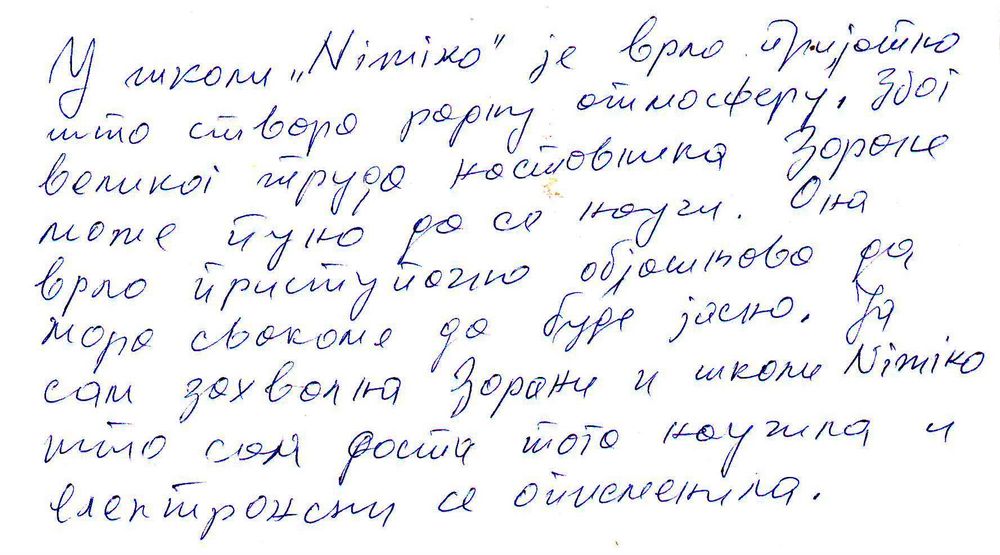 У школи „Nimiko" је врло пријатно
што ствара радну атмосферу. Због
великог труда наставника Зоране
може пуно да се научи. Она
врло приступачно објашњава да
мора свакоме да буде јасно. Ја
сам захвална Зорани и школи Nimiko
што сам доста тога научила и
електронски се описменила.